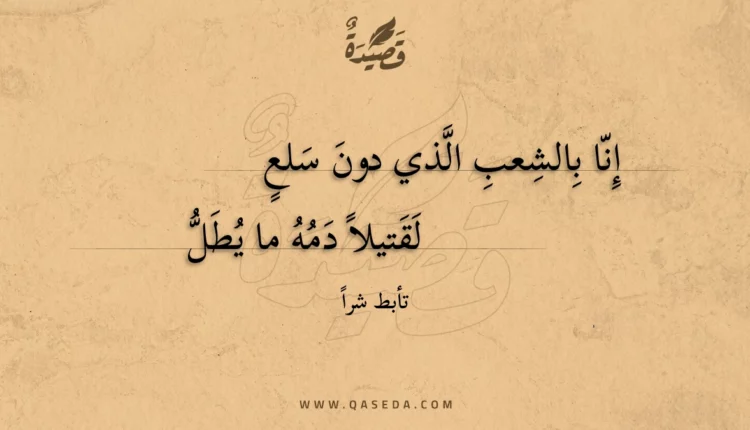 قَصِيْدَةٌ
إِنّا بِالشِعبِ الَّذي دونَ سَلعٍ
لَقَتيلاً دَمُهُ ما يُطَلُّ
تأبط شراً
WWW.QASEDA.COM